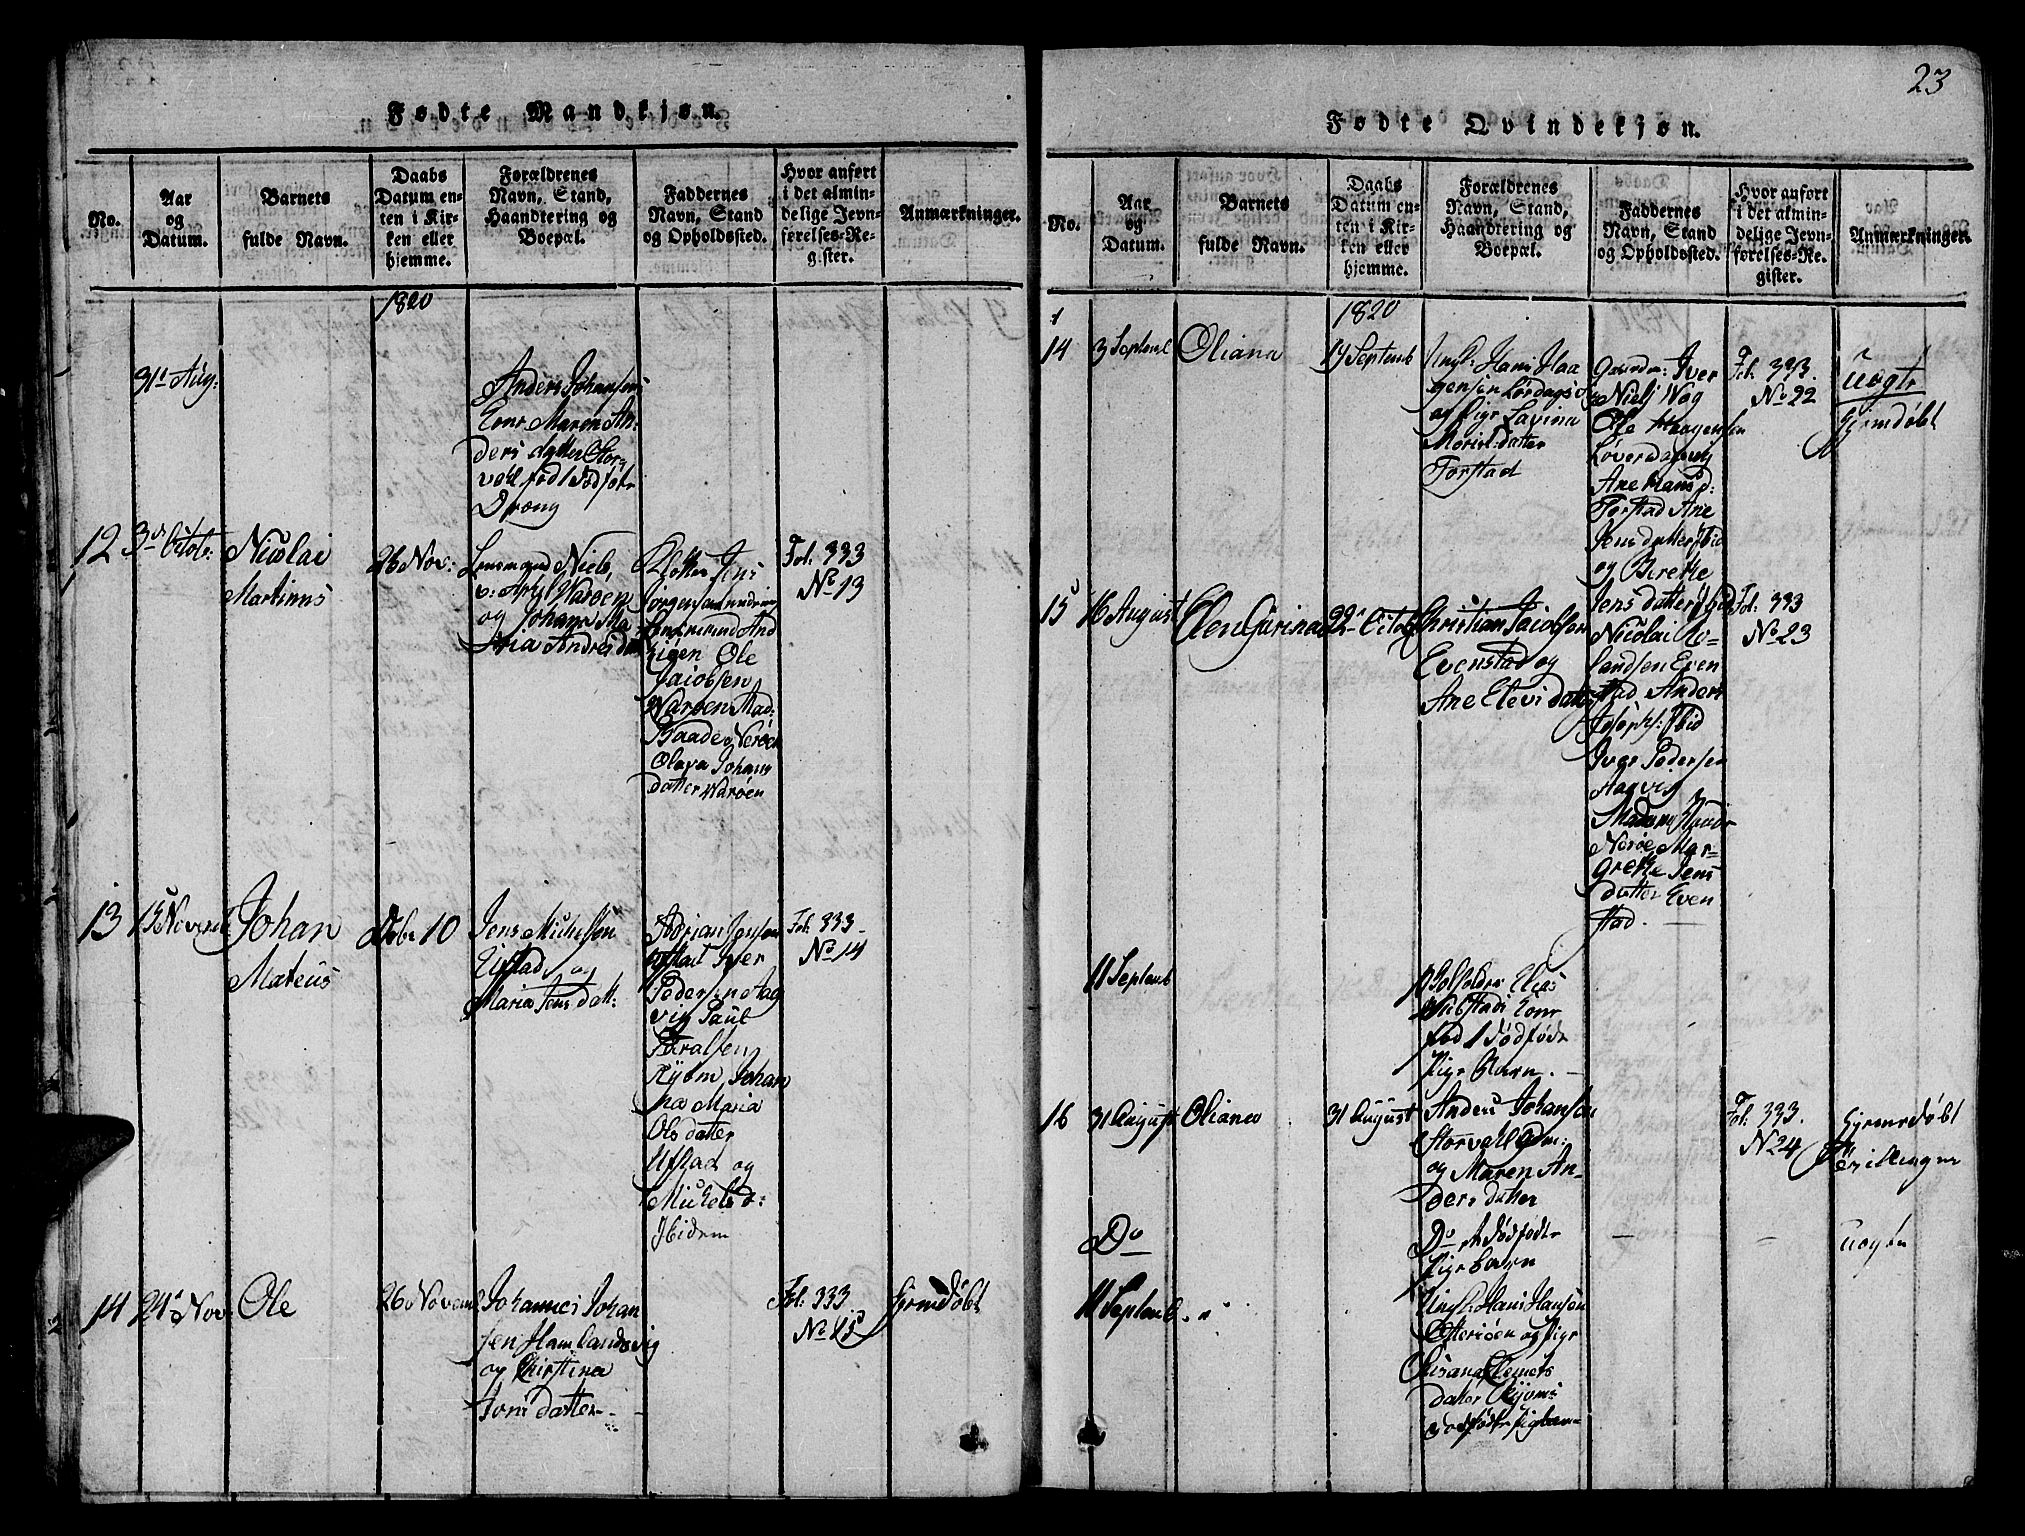 23
Fødte Mandkjøn.
No.
Aar
og
Datum.
Barnets
fulde Navn.
Daabs
Datum en-
ten i Kir-
ken eller
hjemme.
Forældrenes
Navn, Stand,
Haandtering og
Boepæl.
Faddernes
Navn, Stand
og Opholdssted.
Hvor anført
i det almin-
delige Jevn-
førelses-Re-
gister.
Anmærkninger.
1820
31d Aug:
Anders Johansens
Kone Maren An-
ders datter Stor-
vold fød 1 Dødfødt
Dreng
12
3de Octob:
Nicolai
Martinus
26 Nov:
Niels
Warøen
og Johana Ma
ria Andrisdat
Klokker Jens
Jørgensen
Ole
Jacobsen
Warøen Mad:
Baade Nerøen
Olava Johans
datter Warøen
Fol: 333
No 13
13
15 Novemb
Johan
Mateus
Debr 10
Jens Michelsen
Ufstad og
Maria Jens datt:
Adrian Jensen
Ufstad Iver
Pedersen Aag
vig Paul
Kjøm, Johan
na Maria
Ols datter
Ufstad og
Michels d:
Ibidem
Fol: 333
No 14
14
24d Nov:
Ole
26 Novemb
Johannes Johan
sen Hamlandsvig
og Christina
Tom datter
Fol: 333
No 15
hjemdøbt
Fødte Qvindekjøn.
No.
Aar
og
Datum.
Barnets
fulde Navn.
Daabs
Datum en-
ten i Kir-
ken eller
hjemme.
Forældrenes
Navn, Stand,
Haandtering og
Boepæl.
Faddernes
Navn, Stand
og Opholdssted.
Hvor anført
i det almin-
delige Jevn-
førelses-Re-
gister.
Anmærkninger.
1820
14
3 Septemb
Oliana
17 Septemb
Ungk: Hans Haa
gensen Lørdagsø
og Pige Lavina
Moriss datter
Forstad
Gaardm: Iver
Niels Wog
Ole Haagensen
Ane Hans d:
Forstad Ane
Jens datter Ibid
og Berethe
Jens datter Ibid
Fol. 333.
No 22
uægte
hjemdøbt
15
16 August
Elen Gurina
22 Octob
Christian Jacobsen
Evenstad og
Ane Elevs datter
Nicolai Ro-
landsen Even
stad Anders
Joseph: Ibid
Iver Pedersen
Aagvig
Madame
Nerøe Mar-
grethe Jens
datter Even
stad.
Fol: 333
No 23
11 Septemb
Elias
Kone
fød 1 Dødfødt
Pige Barn.
16
31 August
Oliana
31 August
Anders Johansen
Storvold Gdm:
og Maren An-
ders datter
Fol: 333.
No 24
hjemmedøbt
Tvillinger
Do
Do 1 dødfødt
Pigebarn
uægte
11 Septemb.
Ungk: Hans Hansen
Otterøen og Pige
Susana Clemets
datter Kjøms
Dødfødt Pigebarn